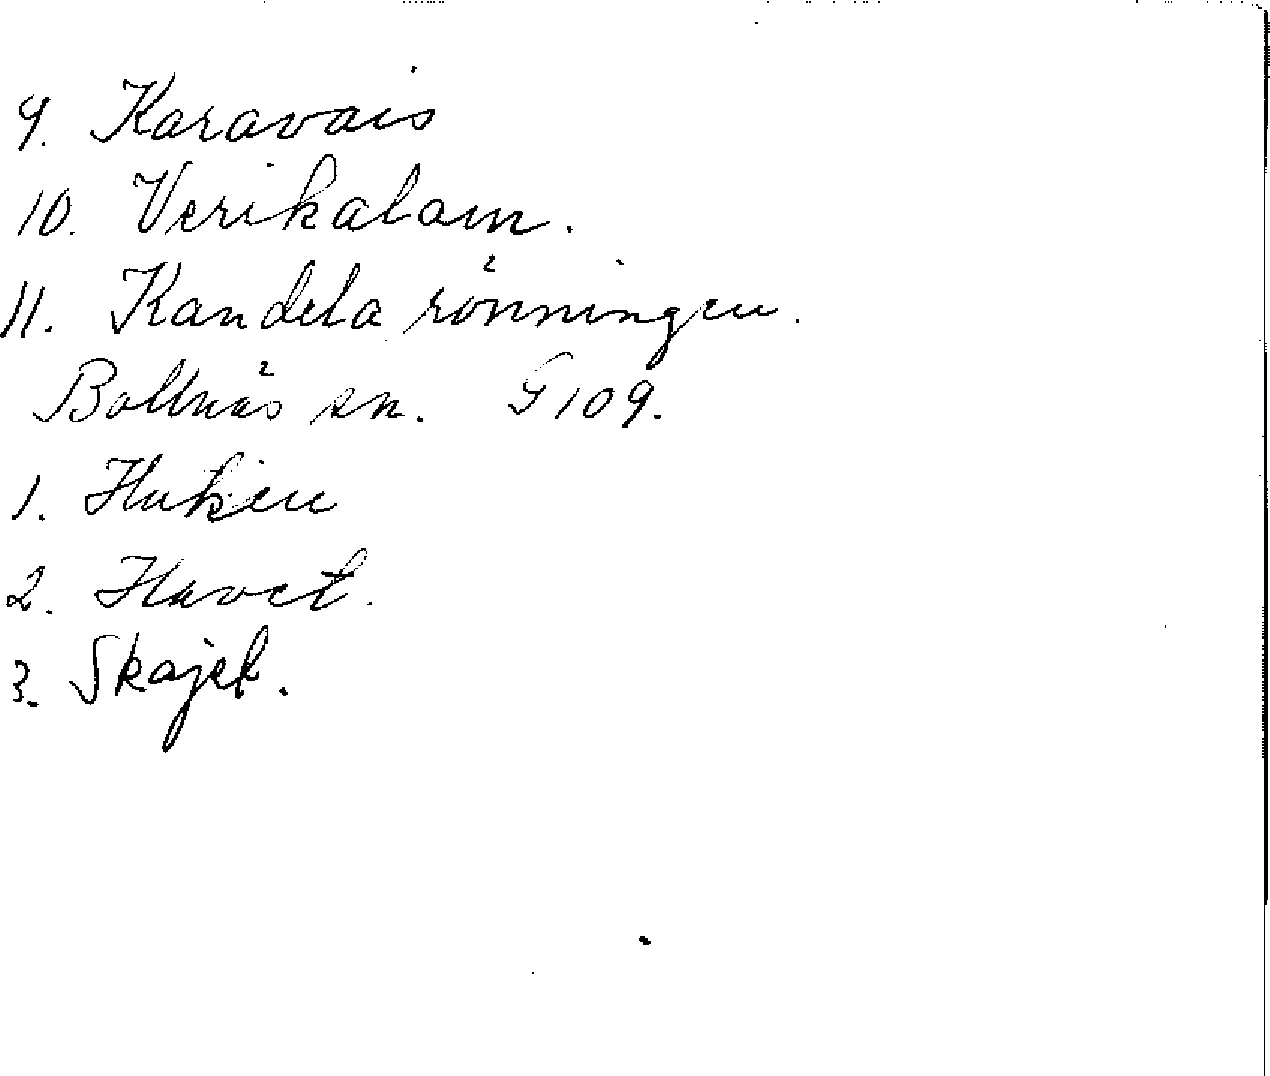 9. Karavais
10. Verikalam.
11. Kandela rönningen.
Bollnäs sn. G 109.
1. Huken
2. Havet.
3. Skajet.